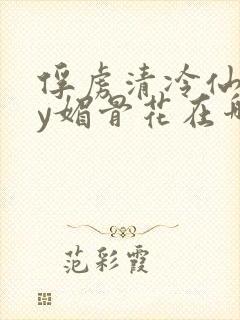 俘虏清冷仙
y媚骨花在
范彩霞